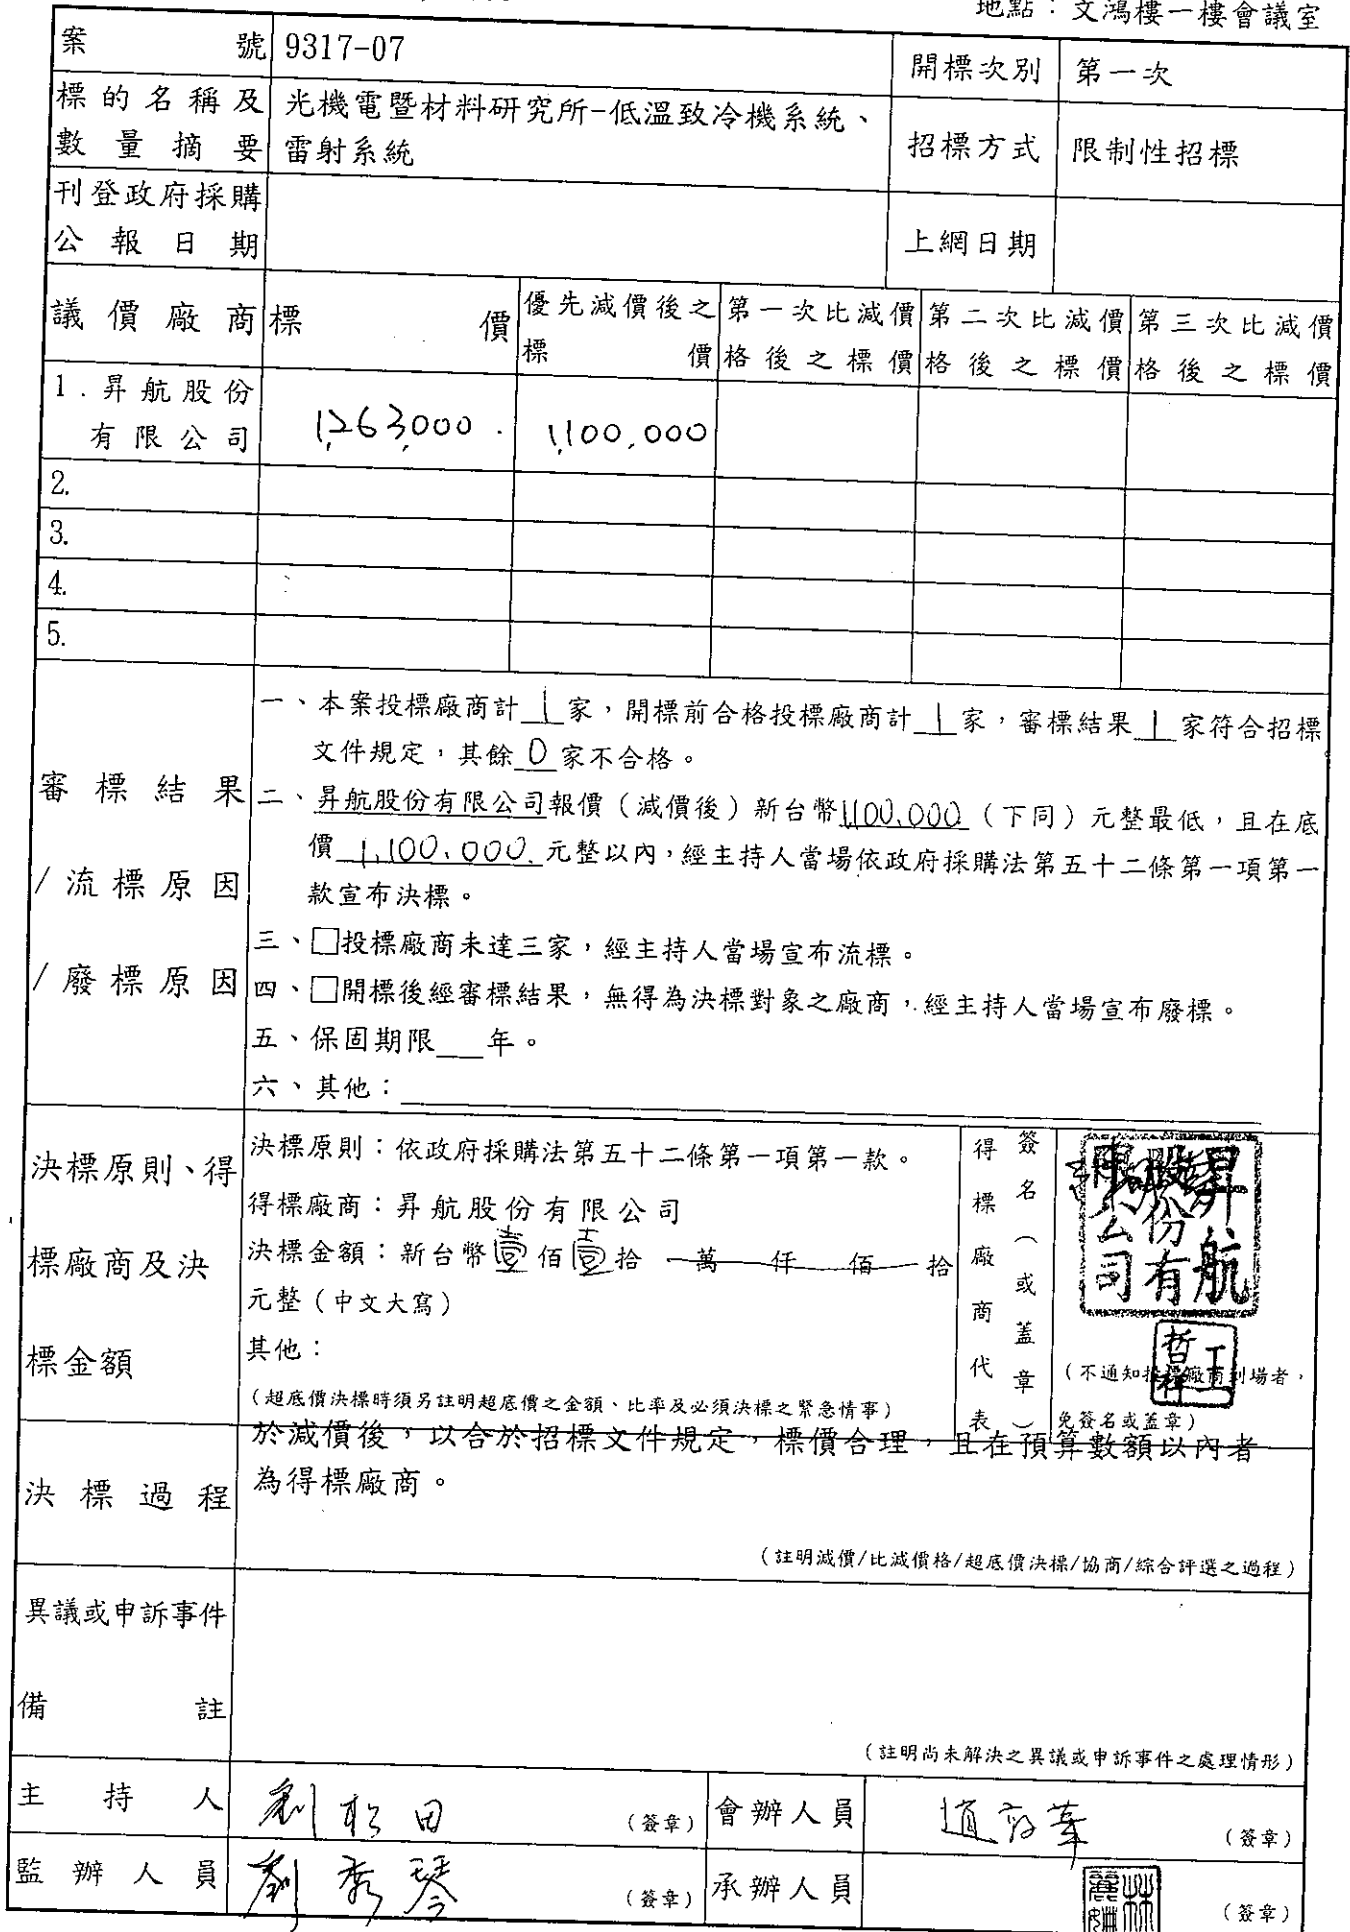 地點：文鴻樓一樓會議室
案號 9317-07
開標次別 第一次
標的名稱及
數量摘要
光機電暨材料研究所-低溫致冷機系統、
雷射系統
招標方式 限制性招標
刊登政府採購
公報日期
上網日期
議價廠商 標價
優先減價後之
標價
第一次比減價
格後之標價
第二次比減價
格後之標價
第三次比減價
格後之標價
1.昇航股份
有限公司
1,263,000
1,100,000
2.
3.
4.
5.
審標結果
/流標原因
/廢標原因
一、本案投標廠商計 1 家，開標前合格投標廠商計 1 家，審標結果 1 家符合招標
文件規定，其餘 0 家不合格。
二、昇航股份有限公司報價（減價後）新台幣1,100,000（下同）元整最低，且在底
價 1,100,000 元整以內，經主持人當場依政府採購法第五十二條第一項第一
款宣布決標。
三、□投標廠商未達三家，經主持人當場宣布流標。
四、□開標後經審標結果，無得為決標對象之廠商，經主持人當場宣布廢標。
五、保固期限__年。
六、其他：
決標原則、得
標廠商及決
標金額
決標原則：依政府採購法第五十二條第一項第一款。
得標廠商：昇航股份有限公司
決標金額：新台幣壹佰壹拾 萬 仟 佰 拾
元整（中文大寫）
其他：
（超底價決標時須另註明超底價之金額、比率及必須決標之緊急情事）
得標廠商代表
簽名（或蓋章）
昇航
股份有
限公司
王
哲祥
（不通知投標廠商到場者，
免簽名或蓋章）
決標過程
於減價後，以合於招標文件規定，標價合理，且在預算數額以內者
為得標廠商。
（註明減價/比減價格/超底價決標/協商/綜合評選之過程）
異議或申訴事件
備註
（註明尚未解決之異議或申訴事件之處理情形）
主持人 劉松田 （簽章）
會辦人員 （簽章）
監辦人員 劉秀琴 （簽章）
承辦人員 林麗 （簽章）